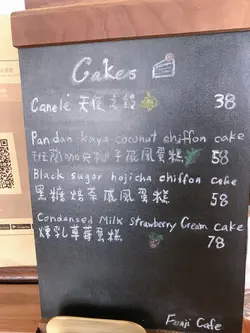 Cakes
Canelé 天使之鈴 38
Pandan kaya coconut chiffon cake
班蘭咖央椰子戚風蛋糕 58
Black sugar hojicha chiffon cake
黑糖焙茶戚風蛋糕 58
Condansed Milk Strawberry Cream cake
煉乳草莓蛋糕 78
Fuuji Cafe